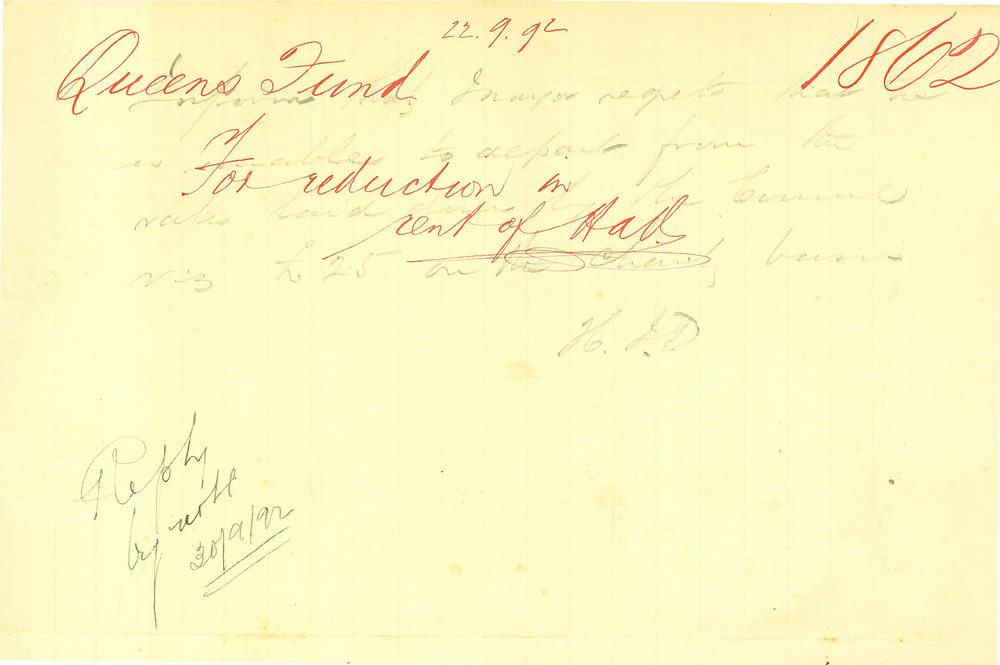 22.9.92
1862
Queens Fund.
For reduction in
rent of Hall
Inform that Mayor regrets that he
is unable to depart from the
rates laid down by the Council
viz £25 on the Charity basis
H.J.D
Reply
by note
30/9/92